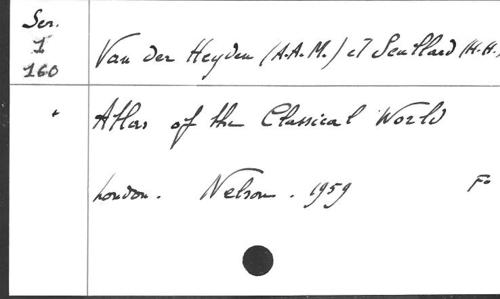 Ser.
1
160
Van der Heyden (A.A.M.) et Scullard (H.H.)
Atlas of the Classical World
London. Nelson. 1959 Fo